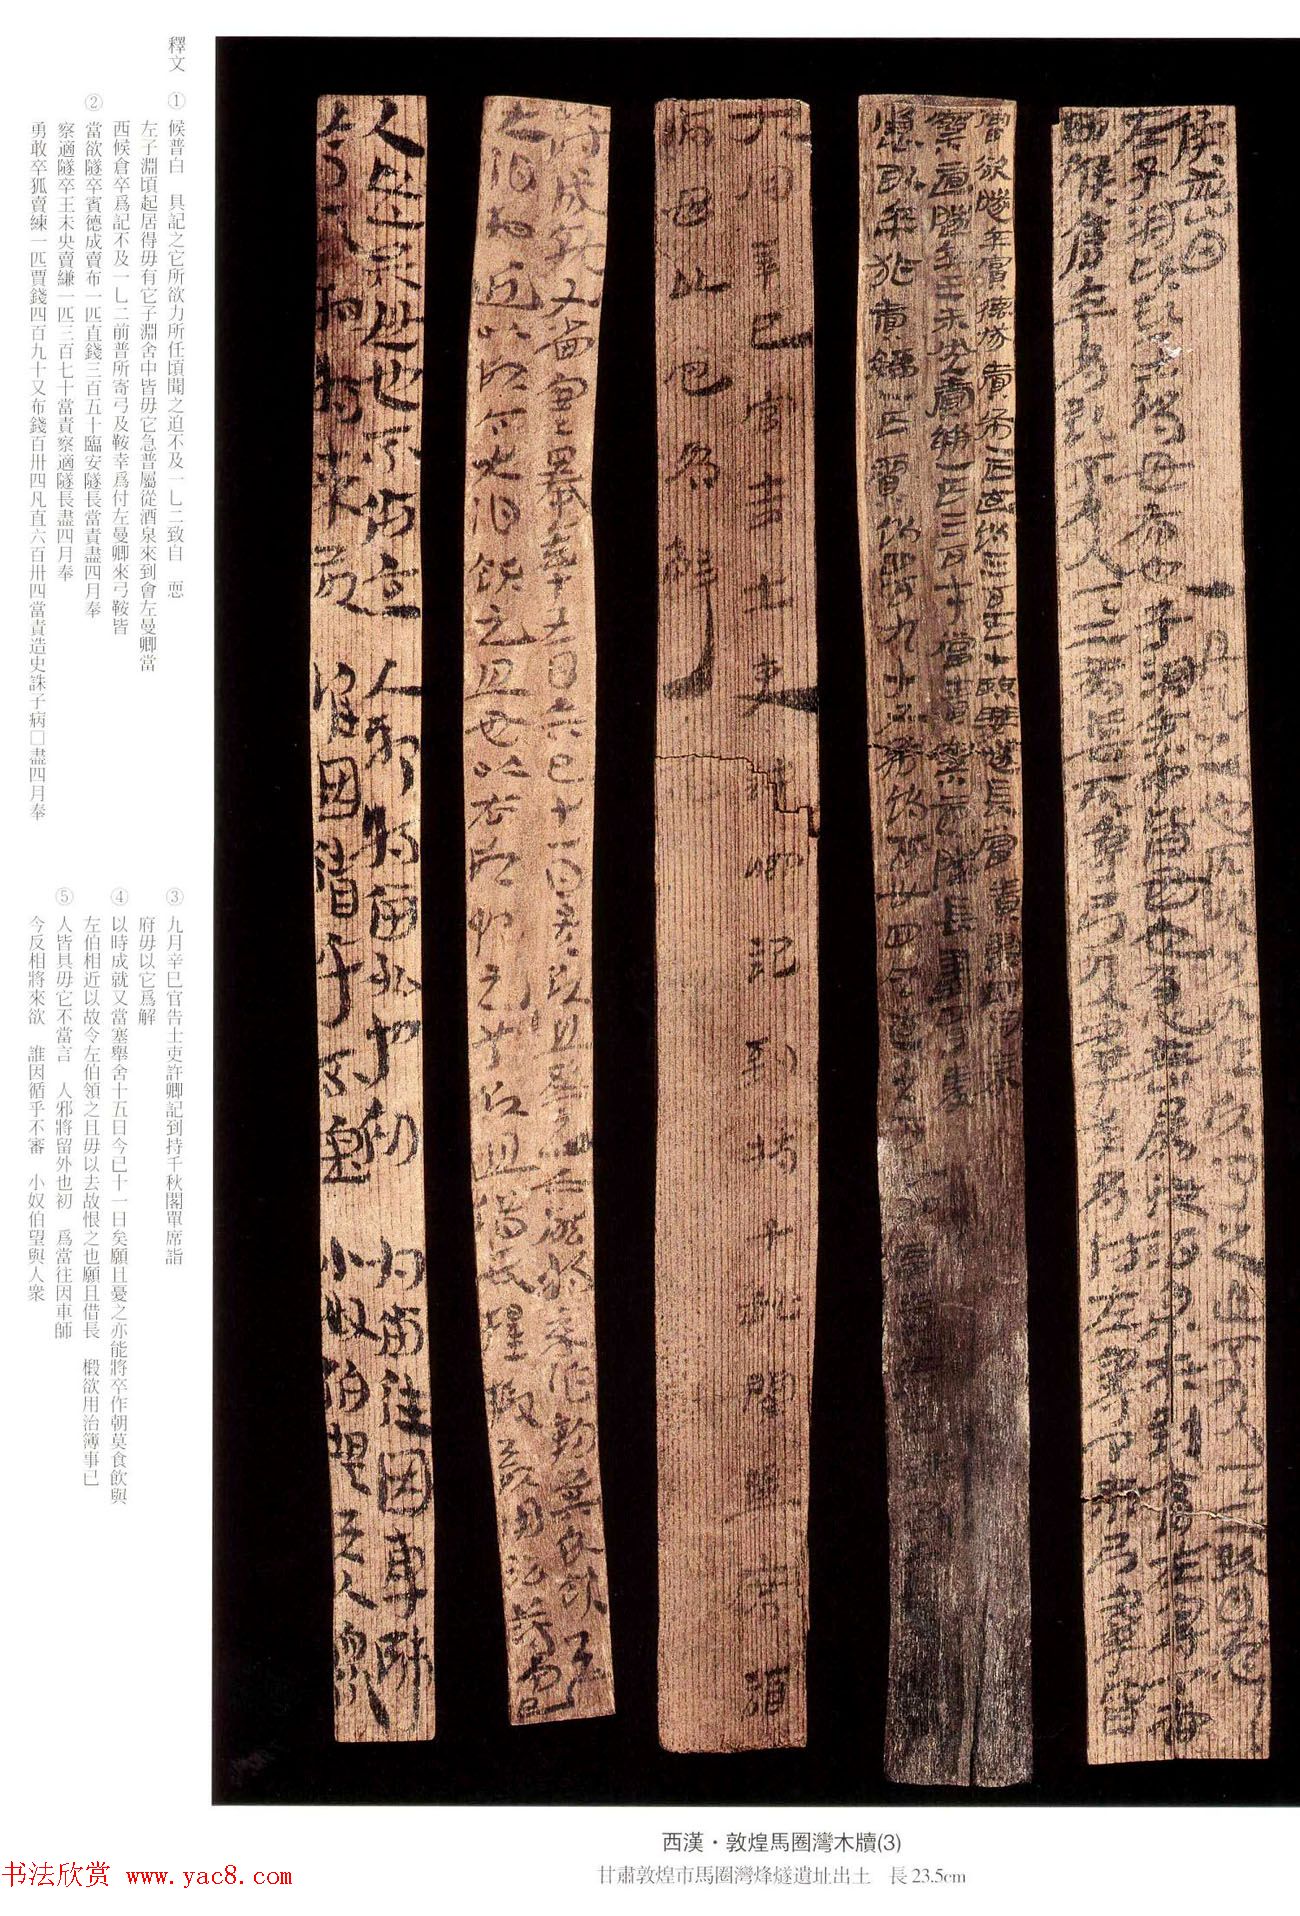 釋文
① 候普白　具記之它所欲力所任頃聞之迫不及一乚二致自　恧
左子淵頃起居得毋有它子淵舍中皆毋它急普屬從酒泉來到會左曼卿當
西候倉卒爲記不及一乚二前普所寄弓及鞍幸爲付左曼卿來弓鞍皆
② 當欲隧卒賓德成賣布一匹直錢三百五十臨安隧長當責盡四月奉
察適隧卒王未央賣縑一匹三百七十當責察適隧長盡四月奉
勇敢卒狐賣練一匹賈錢四百九十又布錢百卅四凡直六百卅四當責造史誅子病□盡四月奉
③ 九月辛巳官告士吏許卿記到持千秋閣單席詣
府毋以它爲解
④ 以時成就又當塞舉舍十五日今已十一日矣願且憂之亦能將卒作朝莫食飲與
左伯相近以故令左伯領之且毋以去故恨之也願且借長　椴欲用治簿事已
⑤ 人皆具毋它不當言　人邪將留外也初　爲當往因車師
今反相將來欲　誰因循乎不審　小奴伯望與人衆
西漢・敦煌馬圈灣木牘(3)
甘肅敦煌市馬圈灣烽燧遺址出土　長 23.5cm
书法欣赏 www.yac8.com